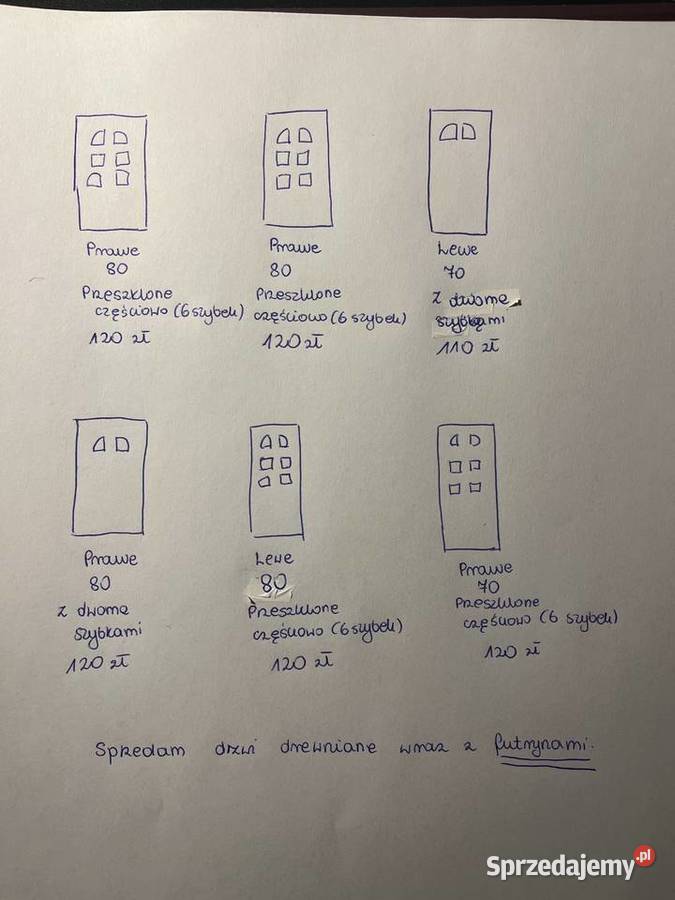 Prawe
80
Przeszklone
częściowo (6 szybek)
120 zł
Prawe
80
Przeszklone
częściowo (6 szybek)
120 zł
Lewe
70
z dwoma
szybkami
110 zł
Prawe
80
z dwoma
szybkami
120 zł
Lewe
80
Przeszklone
częściowo (6 szybek)
120 zł
Prawe
70
Przeszklone
częściowo (6 szybek)
120 zł
Sprzedam drzwi drewniane wraz z futrynami.
Sprzedajemy.pl